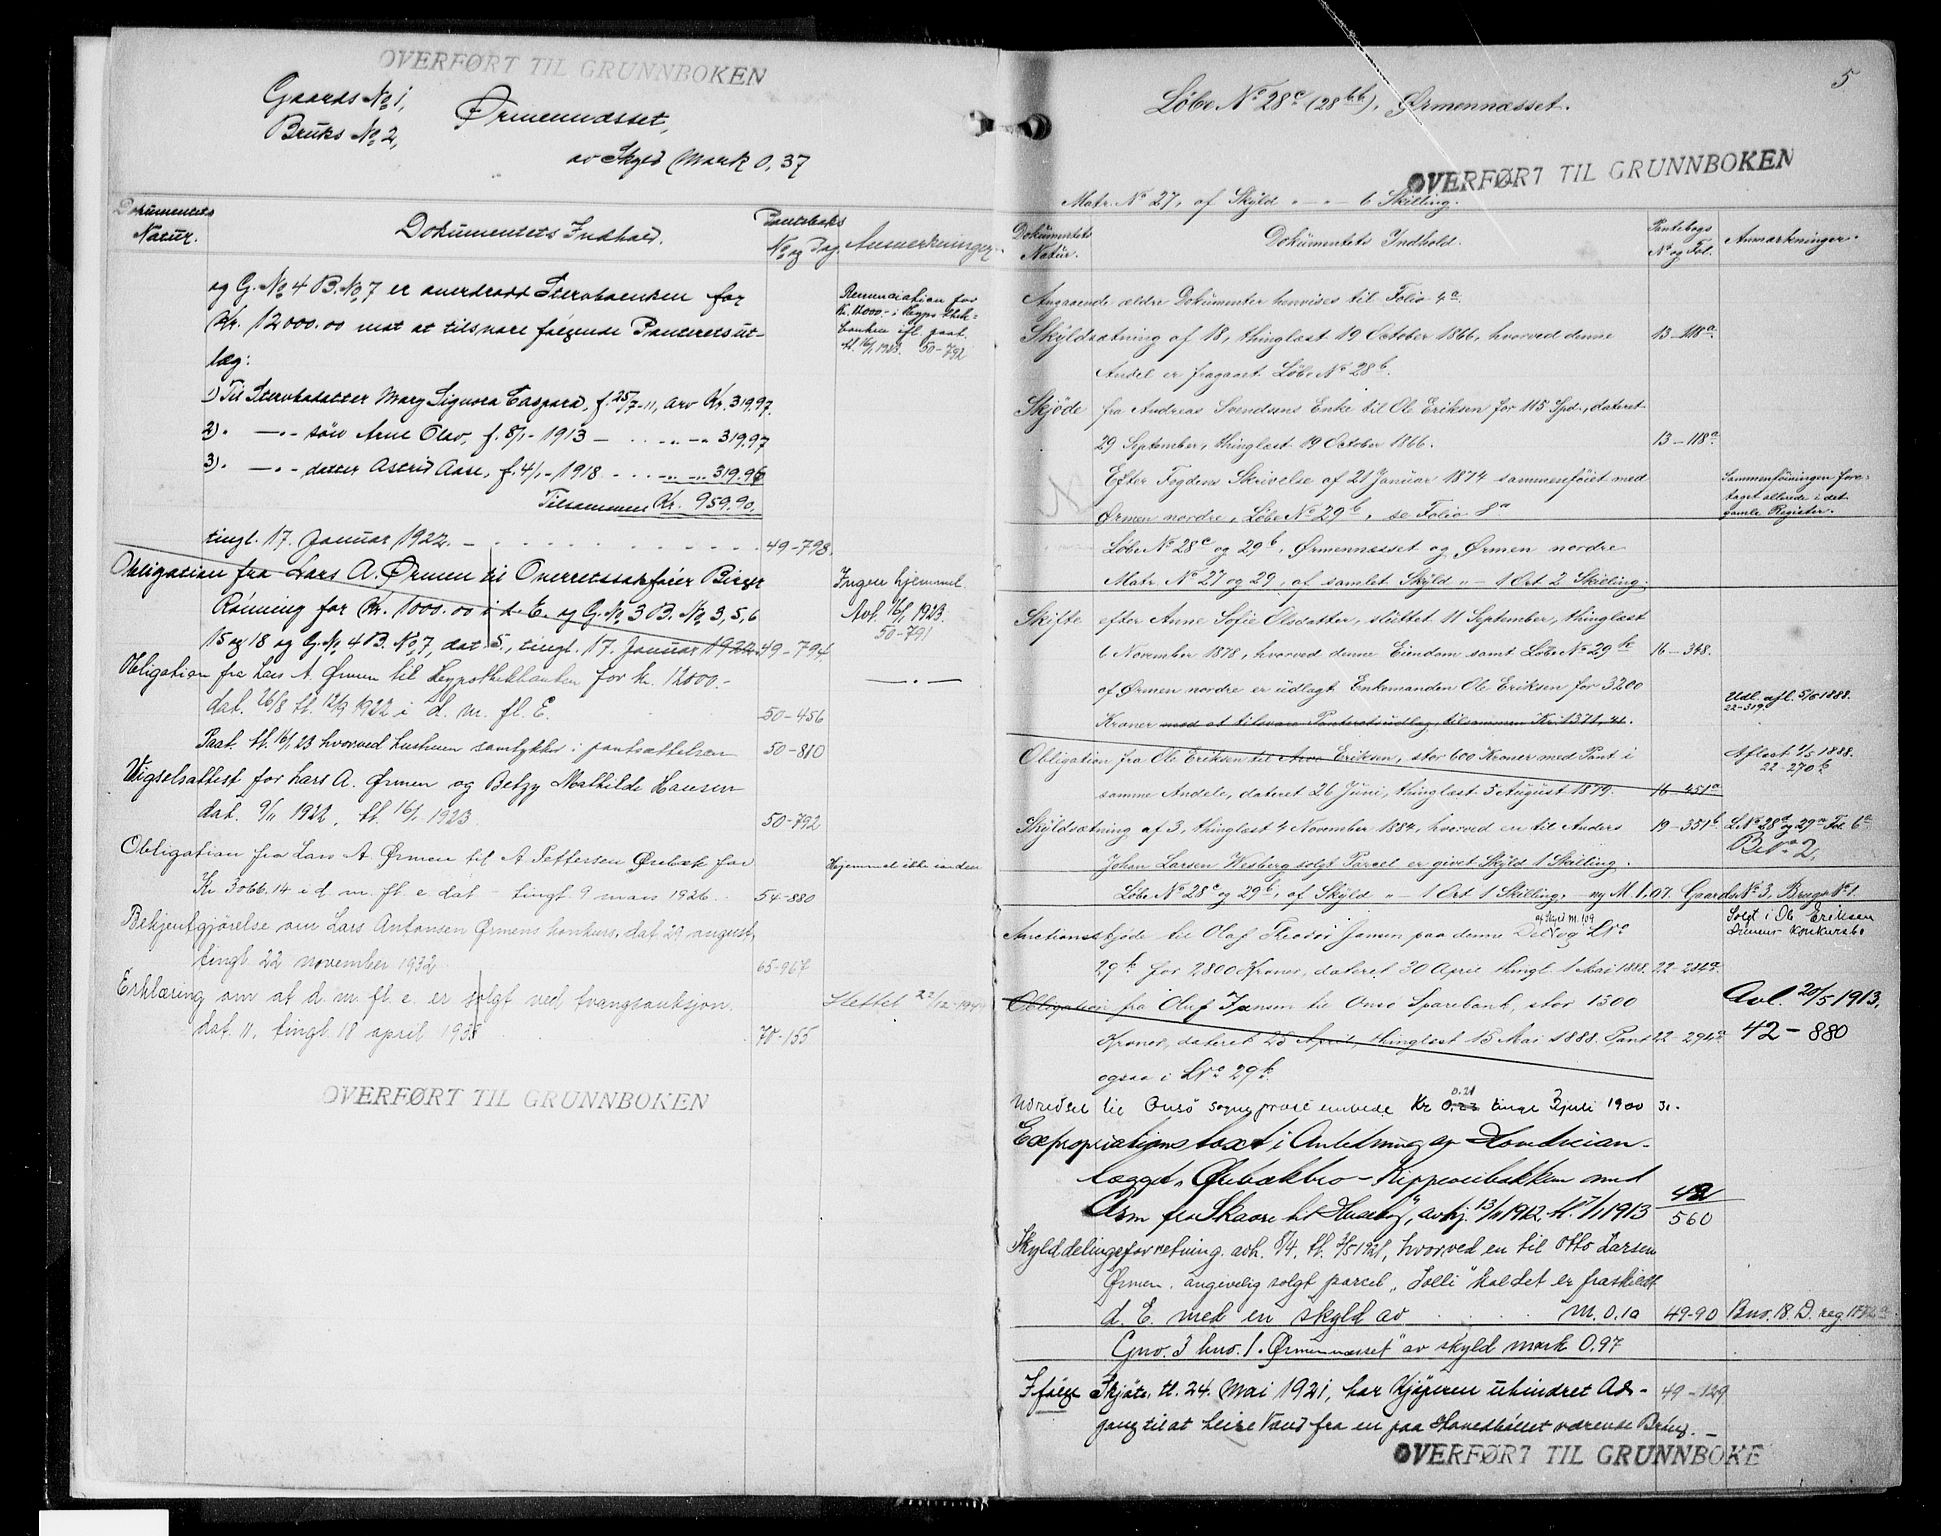 OVERFØRT TIL GRUNNBOKEN
Gaards No 1,
Bruks No 2,
Ørmennæsset,
av Skyld Mark 0,37
Dokumentets Natur.
Dokumentets Indhold.
Panteboks No og Pag.
Anmerkninger.
og G. No 4 B. No 7 er overdradd Stervboenken for
Kr. 12000.00 mot at tilsvare følgende Panteretsut-
læg:
Renunciation for
Kr. 12000.- i Hypothek-
banken ifl. paat.
tl. 16/1 1923. 50-792
1) Til Stervbodatter Mary Signora Caspara, f. 25/7-11, arv Kr. 319.97.
2) " —"— søn Arne Olav, f. 8/1-1913 — . . " —" 319.97
3) " —"— datter Astrid Aase, f. 4/1-1918 . . . 319.96
Tilsammen Kr. 959.90.
tingl. 17. Januar 1922. — 49-798.
Obligation fra Lars A. Ørmen til Overretssakfører Birger
Rönning for Kr. 1000.00 i d. E. og G. No 3 B. No 3, 5, 6
15 og 18 og G. No 4 B. No 7, dat. 5., tingl. 17. Januar 1922 49-794
Ingen hjemmel
Avl. 16/1 1923.
50-791
Obligation fra Lars A. Ørmen til Hypothekbanken for kr. 12000.-
dat. 26/8 tl. 12/9 1922 i d. m. fl. E. 50-456
—"—
Paat. tl. 16/1 23 hvorved hustruen samtykker i pantsættelsen 50-810
Vigselsattest for Lars A. Ørmen og Betzy Mathilde Hansen
dat. 9/11 1922, tl. 16/1 1923. 50-792
Obligation fra Lars A. Ørmen til A. Pettersen Ørebæk for
Kr. 3066.14 i d. m. fl. e. dat — tingl. 9 mars 1926. 54-880
Hjemmel ikke i orden
Bekjentgjörelse om Lars Antonsen Ørmens konkurs, dat. 29 august,
tingl. 22 november 1932. 65-967
Erklæring om at d. m. fl. e. er solgt ved tvangsauksjon.
dat. 11, tingl. 18 april 1935 70-155
Slettet 22/12-194
OVERFØRT TIL GRUNNBOKEN
5
Löbe No 28c (28bb), Ørmennæsset.
OVERFØRT TIL GRUNNBOKEN
Matr. No 27, af Skyld " — " — 6 Skilling.
Dokümentets Natur.
Dokümentets Indhold.
Pantebogs No og Fol.
Anmærkninger.
Angaaende ældre Dokümenter henvises til Folio 4a.
Skyldsætning af 18, thinglæst 19 October 1866, hvorved denne 13-118a
Andel er fragaaet Löbe No 28b.
Skjöde fra Andreas Svendsens Enke til Ole Eriksen for 115 Spd., dateret
29 September, thinglæst 19 October 1866. 13-118a
Efter Fogdens Skrivelse af 21 Januar 1874 sammenföiet med
Ørmen nordre, Löbe No 29b, se Folio 8a
Sammenföiningen fore-
taget allerede i det
gamle Register.
Löbe No 28c og 29b, Ørmennæsset og Ørmen nordre
Matr. No 27 og 29, af samlet Skyld " — 1 Ort 2 Skilling.
Skifte efter Anne Sofie Olsdatter, sluttet 11 September, thinglæst
6 November 1878, hvorved denne Eiendom samt Löbe No 29b 16-348.
af Ørmen nordre er udlagt Enkemanden Ole Eriksen for 3200
Kroner med at tilsvare Panteretsudlæg, tilsammen Kr. 1371,41.
Udl. afl. 5/6 1888.
22-319
Obligation fra Ole Eriksen til Arve Eriksen, stor 600 Kroner med Pant i
samme Andele, dateret 26 Juni, thinglæst 5 August 1879. 16-451a
Aflæst 1/5 1888.
22-270b
Skyldsætning af 3, thinglæst 4 November 1884, hvorved en til Anders 19-351b
Johan Larsen Wesberg solgt Parcel er givet Skyld 1 Skilling.
L. No 28d og 29a Fol. 6a
B. No 2.
Löbe No 28c og 29b, af Skyld " — 1 Ort 1 Skilling, ny M. 1,07. Gaards No 3, Brugs No 1.
af Skyld M. 1.09
Auctionsskjöde til Olaf Theodor Jansen paa denne Del og LNo
29b for 2800 Kroner, dateret 30 April thingl. 1 Mai 1888. 22-284a
Solgt i Ole Eriksen
Ørmens Konkursbo
Obligation fra Oluf Jansen til Onsö Sparebank, stor 1500
Kroner, dateret 25 April, thinglæst 15 Mai 1888. Pant 22-294a
ogsaa i LNo 29b.
Avl. 20/5 1913.
42-880
0.21
Udredsel til Onsö sogneprest embede Kr 0.23 tingl 3 juli 1900 31.
Expropriationstaxt i Anledning av Hovedveian-
lægget „Ørebækbro — Kippeveibakken med
Arm fra Skaare til Huseby", avhj. 13/11 1912 tl. 17/1 1913 42/560
Skylddelingsforretning avh. 8/4. tl. 2/5 1921, hvorved en til Otto Larsen
Ørmen angivelig solgt parcel „Solli" kaldet er fraskilt
d. E. med en skyld av M. 0.10 49-90 Bno. 18. D. reg
Gno. 3 bno. 1. „Ørmennæsset" av skyld mark 0.97
Ifölge Skjöte, tl. 24. Mai 1921, har Kjöperen uhindret Ad- 49-129
gang til at Leire Vand fra en paa Hovedbölet værende Brönd.
OVERFØRT TIL GRUNNBOKE